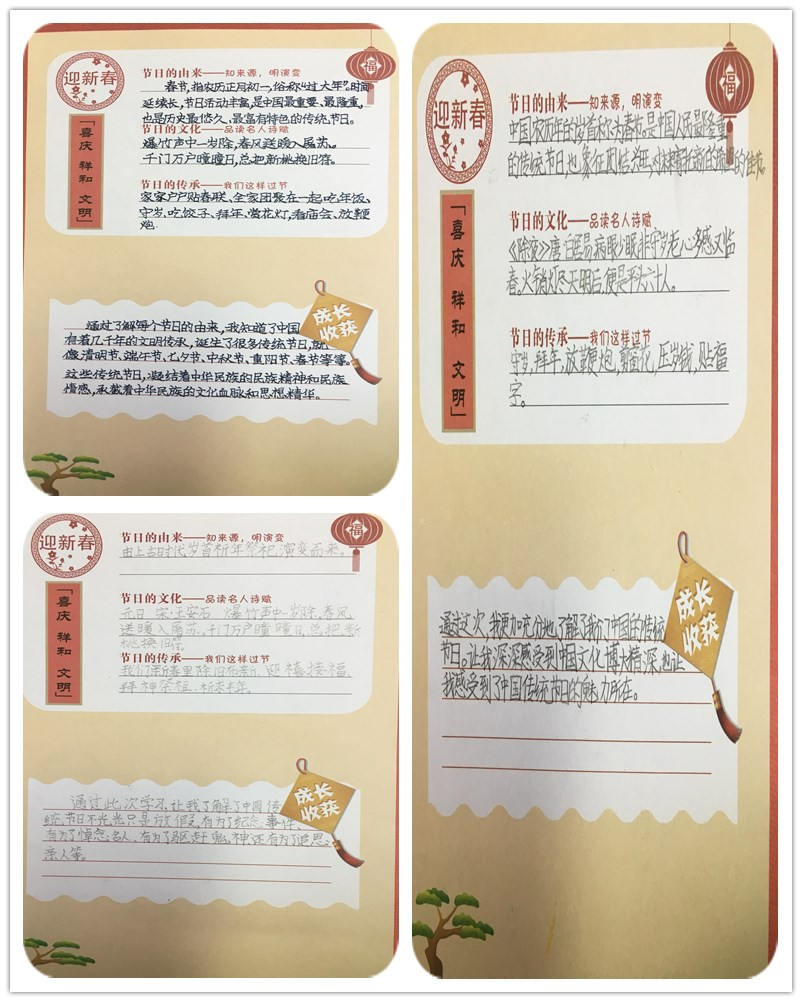 迎新春
「喜庆 祥和 文明」
节日的由来——知来源，明演变
春节，指农历正月初一，俗称“过大年”。时间
延续长，节日活动丰富，是中国最重要、最隆重，
也是历史最悠久、最富有特色的传统节日。
节日的文化——品读名人诗赋
爆竹声中一岁除，春风送暖入屠苏。
千门万户曈曈日，总把新桃换旧符。
节日的传承——我们这样过节
家家户户贴春联、全家团聚在一起吃年饭、
守岁、吃饺子、拜年、赏花灯、看庙会、放鞭
炮.
福
成长
收获
通过了解每个节日的由来，我知道了中国
有着几千年的文明传承，诞生了很多传统节日，就
像清明节、端午节、七夕节、中秋节、重阳节、春节等等。
这些传统节日，凝结着中华民族的民族精神和民族
情感，承载着中华民族的文化血脉和思想精华。
迎新春
「喜庆 祥和 文明」
节日的由来——知来源，明演变
由上古时代岁首祈年祭祀演变而来。
节日的文化——品读名人诗赋
元日 宋·王安石 爆竹声中一岁除，春风
送暖入屠苏。千门万户曈曈日，总把新
桃换旧符。
节日的传承——我们这样过节
我们新春里除旧布新、迎禧接福、
拜神祭祖、祈求丰年。
福
成长
收获
通过此次学习，让我了解了中国传
统节日不光光只是放假，有为了纪念事件、
有为了悼念名人、有为了驱赶鬼神还有为了追思
亲人等。
迎新春
「喜庆 祥和 文明」
节日的由来——知来源，明演变
中国农历年的岁首称为春节。是中国人民最隆重
的传统节日，也象征团结兴旺，对未来寄托新的希望的佳节。
节日的文化——品读名人诗赋
《除夜》唐 白居易 病眼少眠非守岁，老心多感又临
春。火销灯尽天明后，便是平头六十人。
节日的传承——我们这样过节
守岁，拜年，放鞭炮，剪窗花，压岁钱，贴福
字。
福
成长
收获
通过这次，我更加充分地了解了我们中国的传统
节日。让我深深感受到中国文化博大精深，也让
我感受到了中国传统节日的魅力所在。